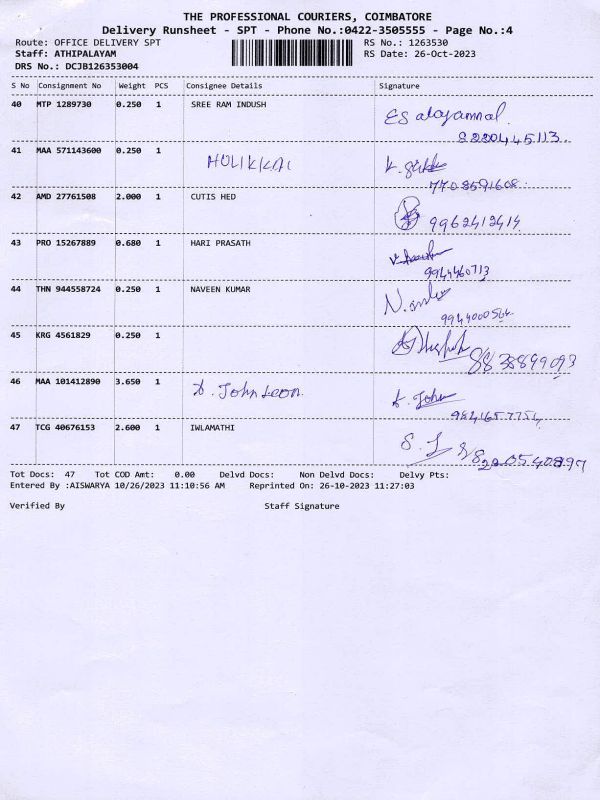 THE PROFESSIONAL COURIERS, COIMBATORE
Delivery Runsheet - SPT - Phone No.:0422-3505555 - Page No.:4
Route: OFFICE DELIVERY SPT RS No.: 1263530
Staff: ATHIPALAYAM RS Date: 26-Oct-2023
DRS No.: DCJB126353004
S No Consignment No Weight PCS Consignee Details Signature
40 MTP 1289730 0.250 1 SREE RAM INDUSH
8220445113
41 MAA 571143600 0.250 1
7708591608
42 AMD 27761508 2.000 1 CUTIS HED
9962412414
43 PRO 15267889 0.680 1 HARI PRASATH
9944460713
44 THN 944558724 0.250 1 NAVEEN KUMAR
9944000564
45 KRG 4561829 0.250 1
8838899093
46 MAA 101412890 3.650 1 A. Johnson A. John
47 TCG 40676153 2.600 1 IWLAMATHI
Tot Docs: 47 Tot COD Amt: 0.00 Delvd Docs: Non Delvd Docs: Delvy Pts:
Entered By :AISWARYA 10/26/2023 11:10:56 AM Reprinted On: 26-10-2023 11:27:03
Verified By Staff Signature